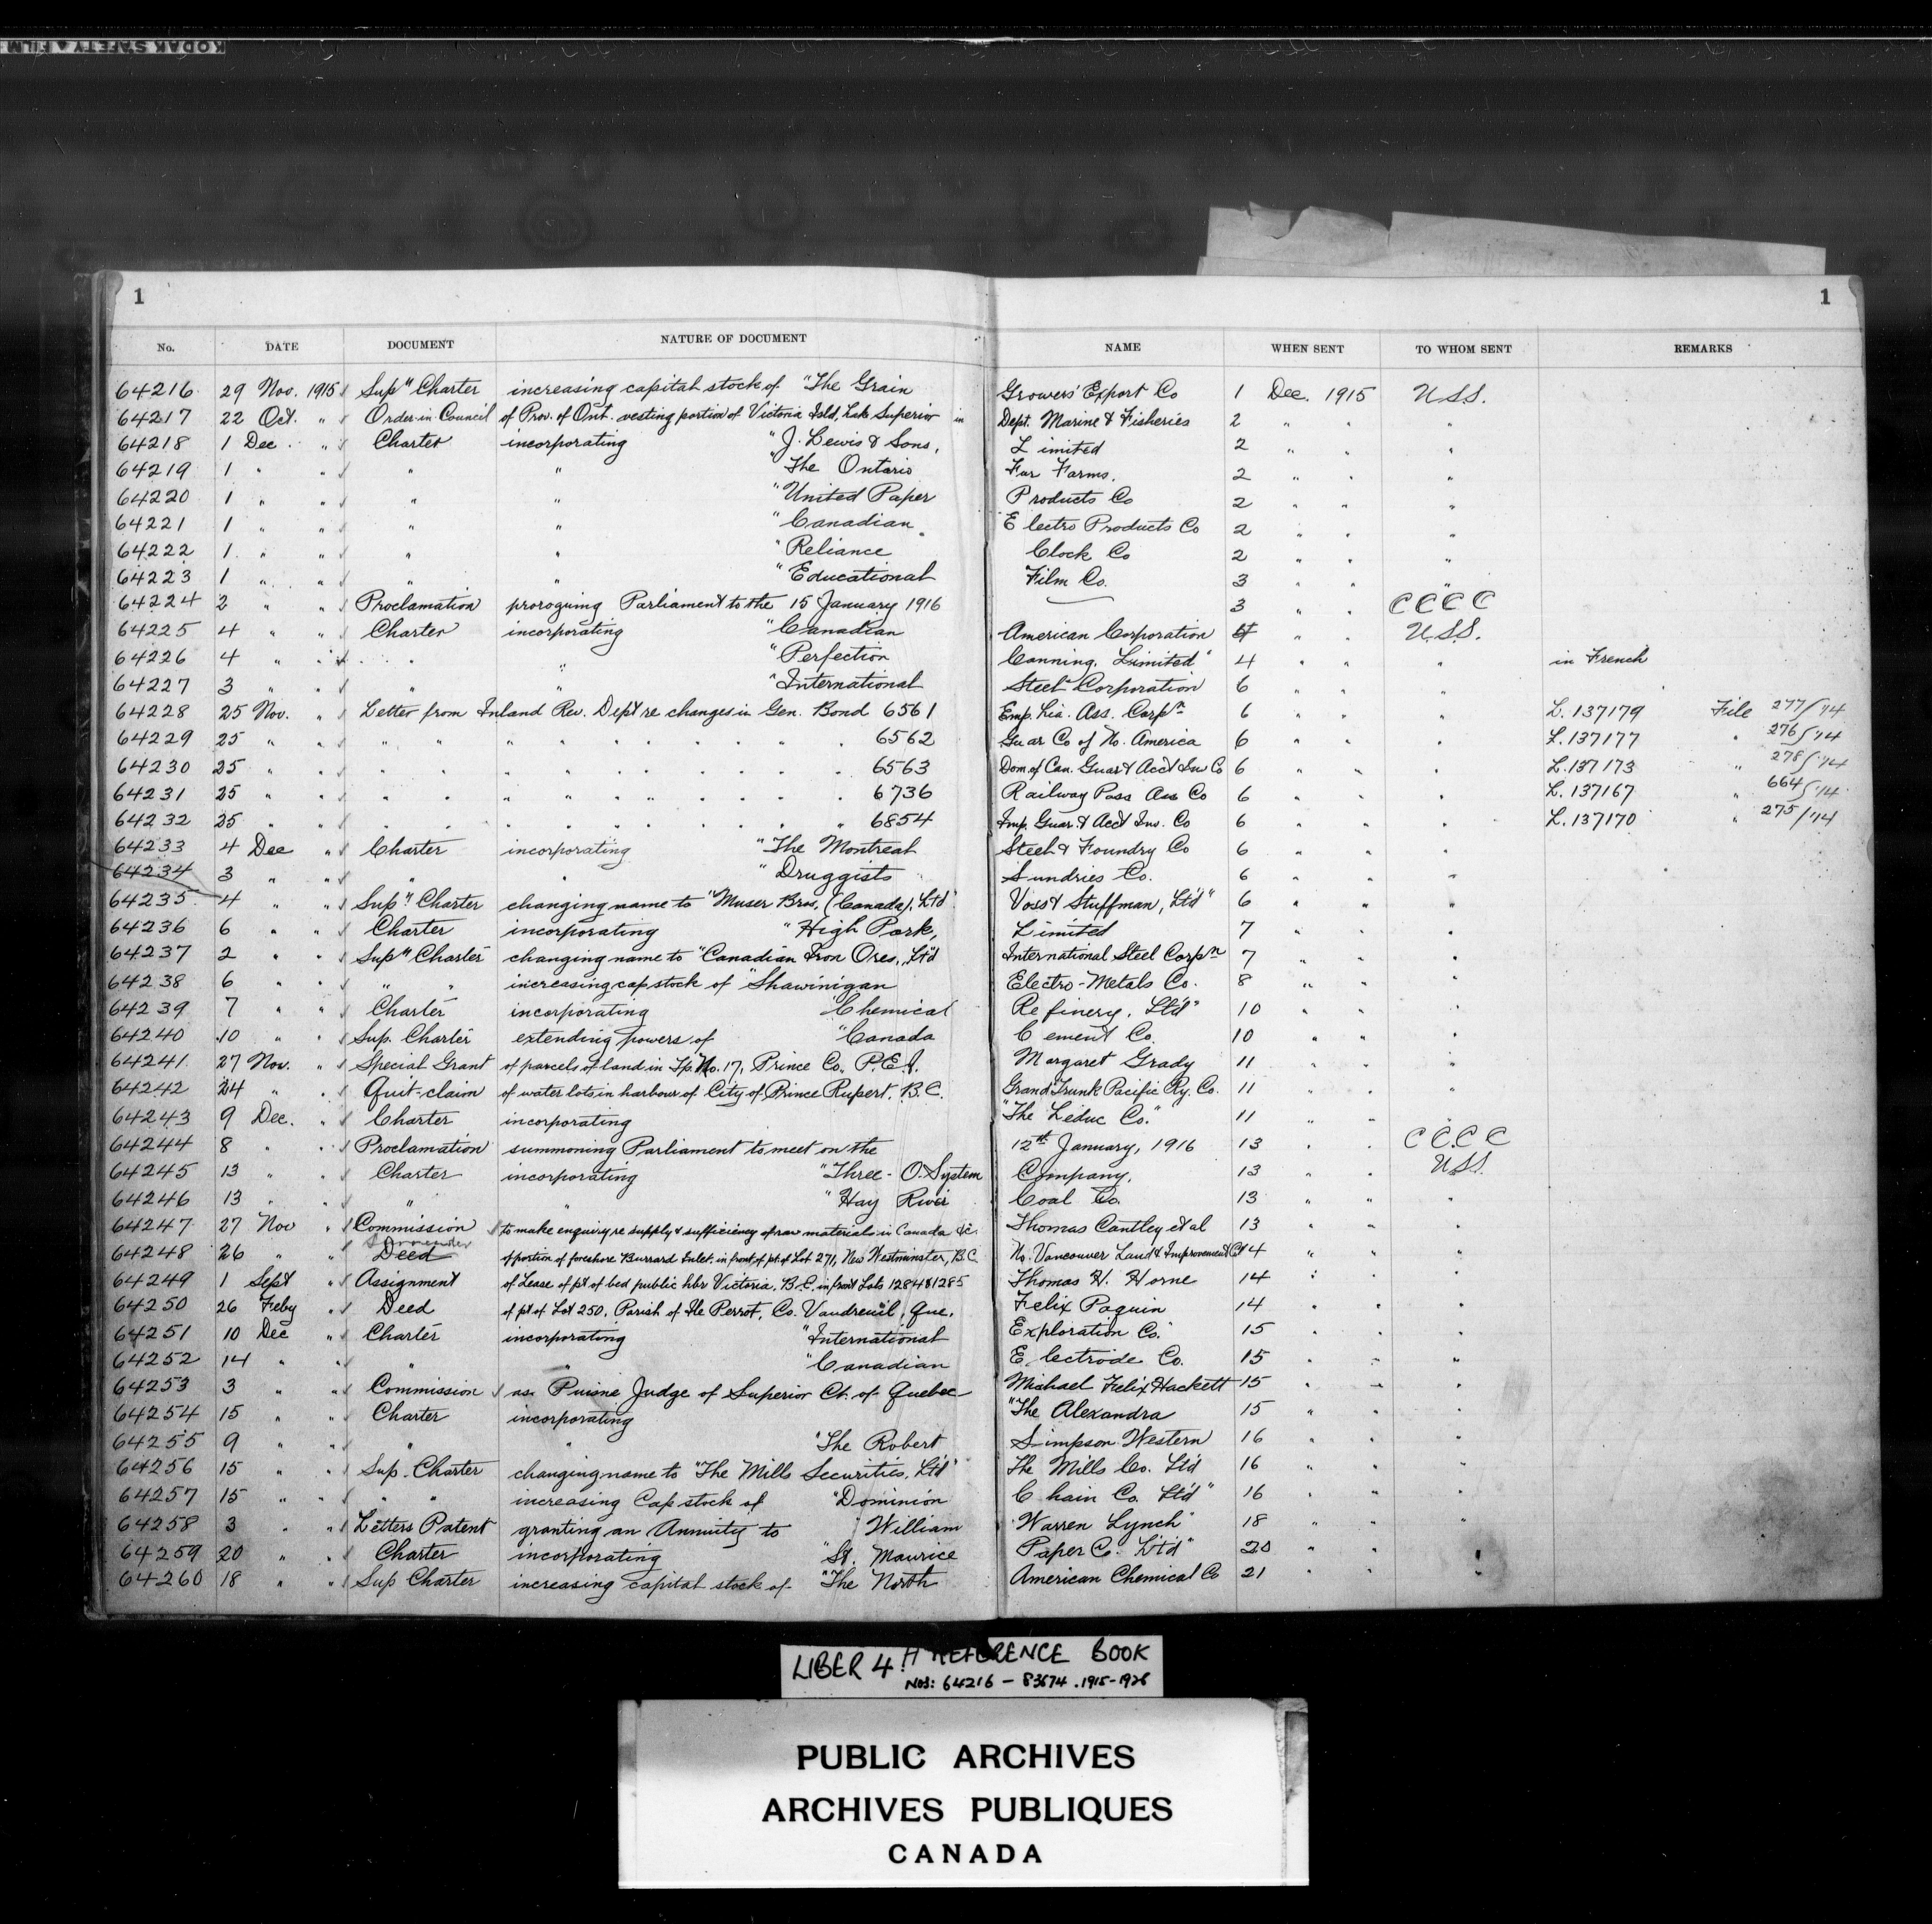 KODAK SAFETY FILM
1 1
No. DATE DOCUMENT NATURE OF DOCUMENT NAME WHEN SENT TO WHOM SENT REMARKS
64216 29 Nov. 1915 Sup'' Charter increasing capital stock of "The Grain Growers' Export Co 1 Dec. 1915 U.S.S.
64217 22 Oct. " Order-in-Council of Prov. of Ont. vesting portion of Victoria Isld, Lak Superior in Dept. Marine & Fisheries 2 " " "
64218 1 Dec. " Charter incorporating "J. Lewis & Sons, Limited 2 " " "
64219 1 " " " " "The Ontario Fur Farms. 2 " " "
64220 1 " " " " "United Paper Products Co 2 " " "
64221 1 " " " " "Canadian Electro Products Co 2 " " "
64222 1 " " " " "Reliance" Clock Co 2 " " "
64223 1 " " " " "Educational Film Co. 3 " " "
64224 2 " " Proclamation proroguing Parliament to the 15 January 1916 3 " " C C C C
64225 4 " " Charter incorporating "Canadian American Corporation 4 " " U.S.S.
64226 4 " " " " "Perfection Canning, Limited" 4 " " " in French
64227 3 " " " " "International Steel Corporation 6 " " "
64228 25 Nov. " Letter from Inland Rev. Dept re changes in Gen. Bond 6561 Emp. Lia. Ass. Corpn 6 " " " L. 137179 File 277/'14
64229 25 " " " " " " " " " " " 6562 Guar Co of No. America 6 " " " L. 137177 " 276/'14
64230 25 " " " " " " " " " " " 6563 Dom. of Can. Guar & Acct Ins Co 6 " " " L. 137173 " 278/'14
64231 25 " " " " " " " " " " " 6736 Railway Pass Ass Co 6 " " " L. 137167 " 664/'14
64232 25 " " " " " " " " " " " 6854 Imp. Guar. & Acct Ins. Co 6 " " " L. 137170 " 275/'14
64233 4 Dec " Charter incorporating "The Montreal Steel & Foundry Co 6 " " "
64234 3 " " " " "Druggists Sundries Co. 6 " " "
64235 4 " " Sup'' Charter changing name to "Muser Bros. (Canada), Ltd" Voss & Stuffman, Ltd" 6 " " "
64236 6 " " Charter incorporating "High Park, Limited 7 " " "
64237 2 " " Sup'' Charter changing name to "Canadian Iron Ores, Ltd International Steel Corpn 7 " " "
64238 6 " " " " increasing cap stock of "Shawinigan Electro-Metals Co. 8 " " "
64239 7 " " Charter incorporating Chemical Refinery, Ltd" 10 " " "
64240 10 " " Sup. Charter extending powers of "Canada Cement Co. 10 " " "
64241 27 Nov. " Special Grant of parcels of land in Tp. No. 17, Prince Co., P.E.I. Margaret Grady 11 " " "
64242 24 " " Quit-claim of water lots in harbour of City of Prince Rupert, B.C. Grand Trunk Pacific Ry. Co. 11 " " "
64243 9 Dec. " Charter incorporating "The Leduc Co." 11 " " "
64244 8 " " Proclamation summoning Parliament to meet on the 12th January, 1916 13 " " C C C C
64245 13 " " Charter incorporating "Three-O. System Company, 13 " " U.S.S.
64246 13 " " " " "Hay River Coal Co. 13 " " "
64247 27 Nov " Commission to make enquiry re supply & sufficiency of raw materials in Canada &c. Thomas Cantley et al 13 " " "
Surrender
64248 26 " " Deed of portion of foreshore Burrard Inlet in front of pt. of Lot 271, New Westminster, B.C. No. Vancouver Land & Improvement Co 14 " " "
64249 1 Sept " Assignment of Lease of pt of bed public hbr Victoria, B.C. in front Lots 1284 & 1285 Thomas H. Horne 14 " " "
64250 26 Feby " Deed of pt of Lot 250, Parish of Ile Perrot, Co. Vaudreuil, Que. Felix Paquin 14 " " "
64251 10 Dec " Charter incorporating "International Exploration Co." 15 " " "
64252 14 " " " " "Canadian Electrode Co. 15 " " "
64253 3 " " Commission as Puisne Judge of Superior Ct. of Quebec Michael Felix Hackett 15 " " "
64254 15 " " Charter incorporating "The Alexandra 15 " " "
64255 9 " " " " "The Robert Simpson Western 16 " " "
64256 15 " " Sup. Charter changing name to "The Mills Securities, Ltd" The Mills Co. Ltd 16 " " "
64257 15 " " " " increasing Cap stock of "Dominion Chain Co. Ltd" 16 " " "
64258 3 " " Letters Patent granting an Annuity to William Warren Lynch" 18 " " "
64259 20 " " Charter incorporating "St. Maurice Paper Co. Ltd" 20 " " "
64260 18 " " Sup Charter increasing capital stock of "The North American Chemical Co 21 " " "
LIBER 4 H REFERENCE BOOK
NOS: 64216 – 83674 . 1915-1928
PUBLIC ARCHIVES
ARCHIVES PUBLIQUES
CANADA